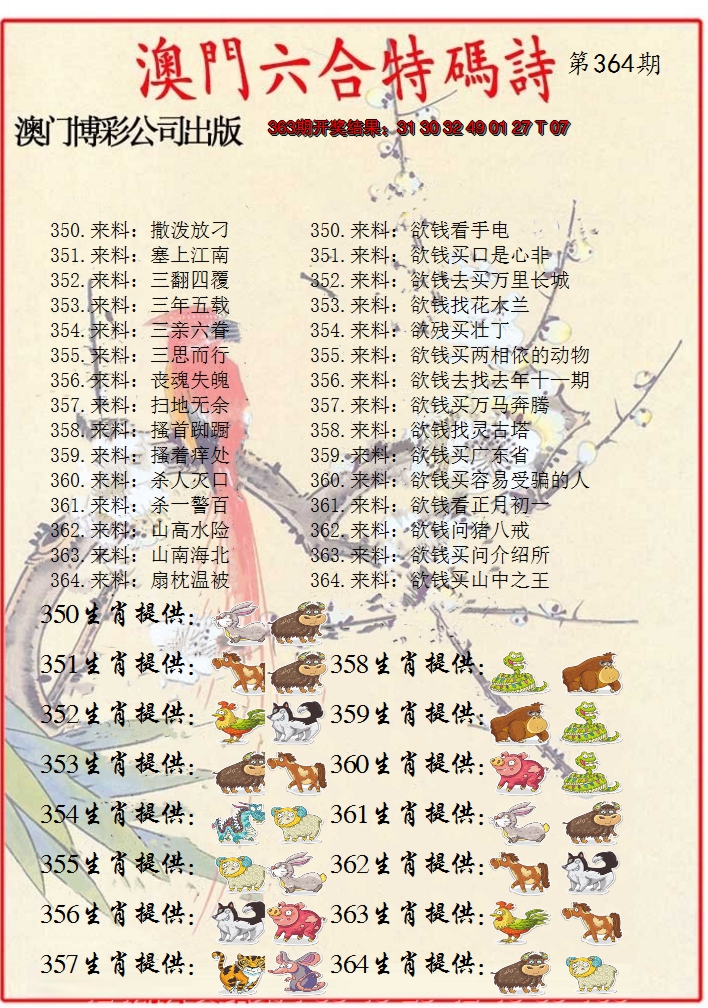 澳門六合特碼詩 第364期
澳门博彩公司出版 363期开奖结果：31 30 32 49 01 27 T 07
350.来料：撒泼放刁 350.来料：欲钱看手电
351.来料：塞上江南 351.来料：欲钱买口是心非
352.来料：三翻四覆 352.来料：欲钱去买万里长城
353.来料：三年五载 353.来料：欲钱找花木兰
354.来料：三亲六眷 354.来料：欲残买壮丁
355.来料：三思而行 355.来料：欲钱买两相依的动物
356.来料：丧魂失魄 356.来料：欲钱去找去年十一期
357.来料：扫地无余 357.来料：欲钱买万马奔腾
358.来料：搔首踟蹰 358.来料：欲钱找灵古塔
359.来料：搔着痒处 359.来料：欲钱买广东省
360.来料：杀人灭口 360.来料：欲钱买容易受骗的人
361.来料：杀一警百 361.来料：欲钱看正月初一
362.来料：山高水险 362.来料：欲钱问猪八戒
363.来料：山南海北 363.来料：欲钱买问介绍所
364.来料：扇枕温被 364.来料：欲钱买山中之王
350生肖提供：
351生肖提供： 358生肖提供：
352生肖提供： 359生肖提供：
353生肖提供： 360生肖提供：
354生肖提供： 361生肖提供：
355生肖提供： 362生肖提供：
356生肖提供： 363生肖提供：
357生肖提供： 364生肖提供：